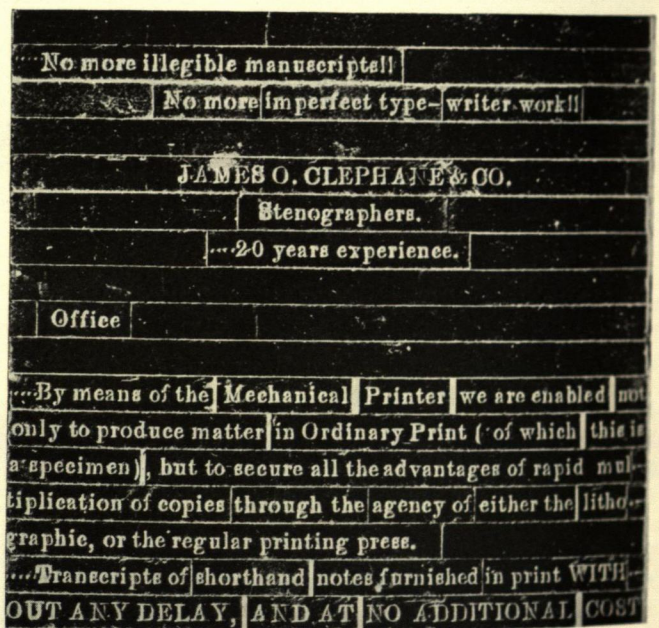 No more illegible manuscripts!!
No more imperfect type-writer work!!
JAMES O. CLEPHANE & CO.
Stenographers.
....20 years experience.
Office
....By means of the Mechanical Printer we are enabled not
only to produce matter in Ordinary Print ( of which this is
a specimen), but to secure all the advantages of rapid mul-
tiplication of copies through the agency of either the litho-
graphic, or the regular printing press.
....Transcripts of shorthand notes furnished in print WITH-
OUT ANY DELAY, AND AT NO ADDITIONAL COST